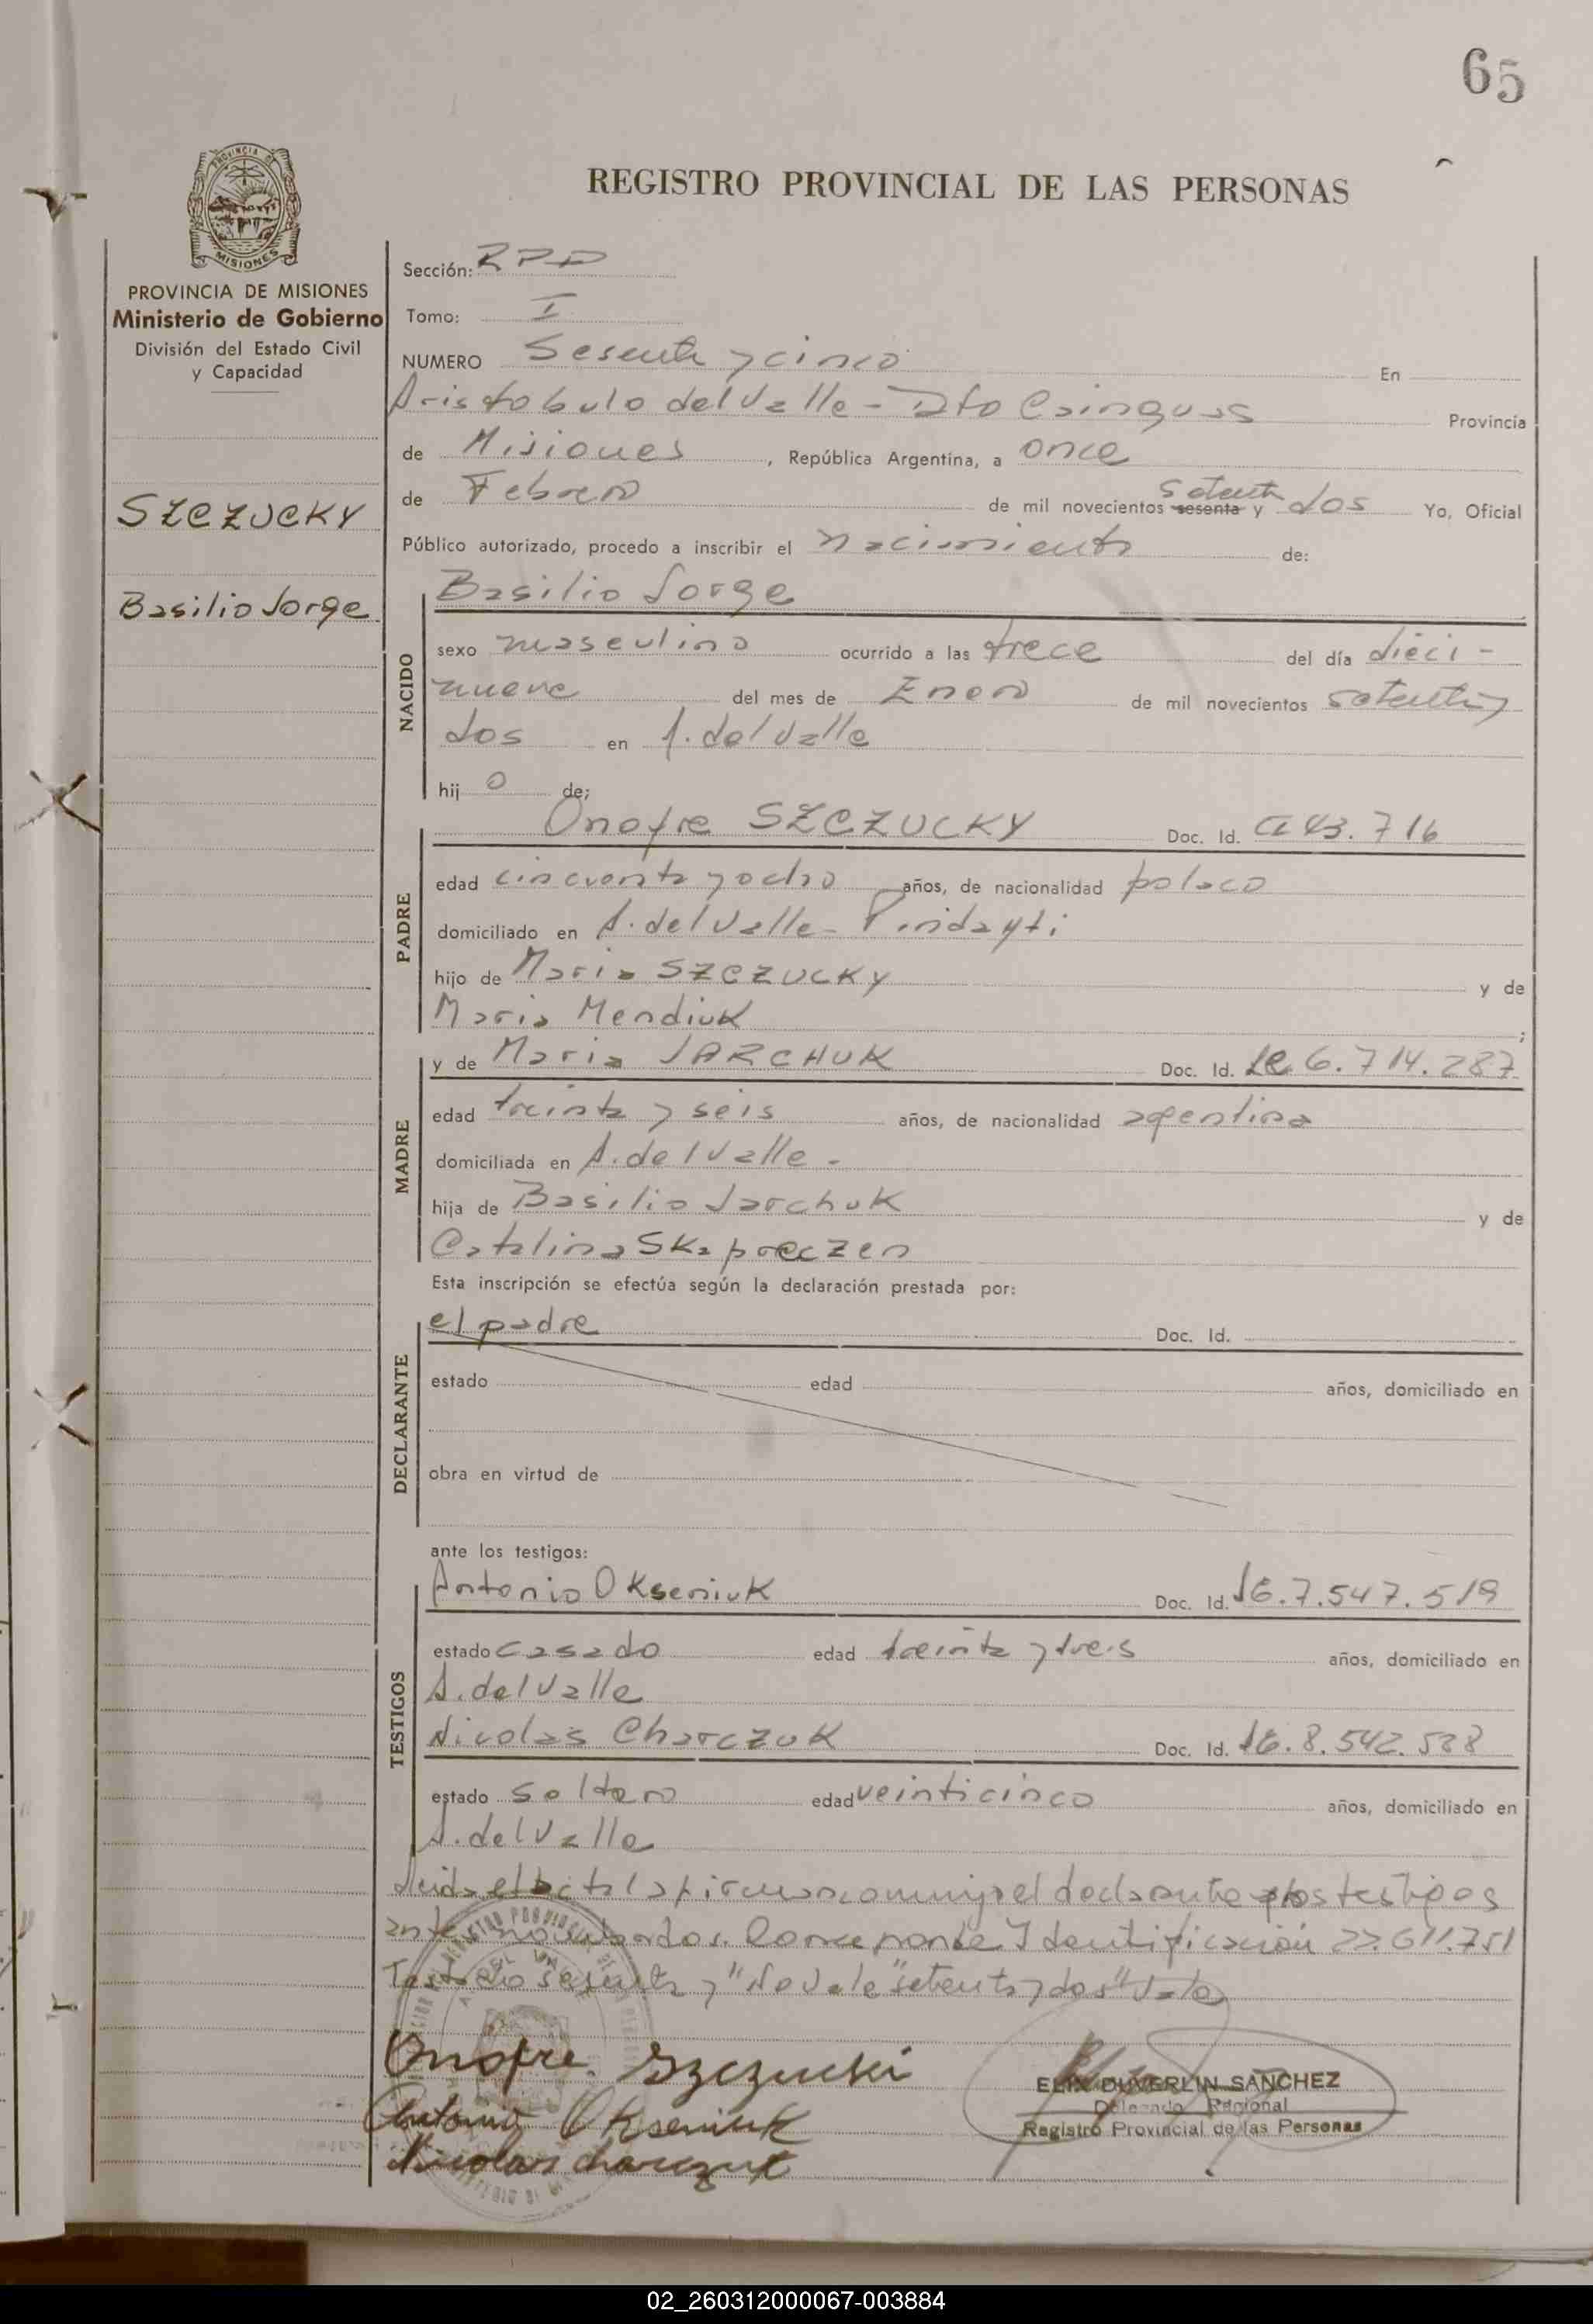 65
REGISTRO PROVINCIAL DE LAS PERSONAS
PROVINCIA DE MISIONES
Ministerio de Gobierno
División del Estado Civil
y Capacidad
SZCZUCKY
Basilio Jorge
Sección: RPD
Tomo: I
NUMERO Sesenta y cinco En
Aristobulo del Valle - Dto Cainguas Provincia
de Misiones, República Argentina, a once
de Febrero de mil novecientos sesenta setenta y dos Yo, Oficial
Público autorizado, procedo a inscribir el nacimiento de:
NACIDO
Basilio Jorge
sexo masculino ocurrido a las trece del día dieci-
nueve del mes de Enero de mil novecientos setenta y
dos en A. del Valle
hijo de:
PADRE
Onofre SZCZUCKY Doc. Id. CI 43.716
edad cincuenta y ocho años, de nacionalidad polaco
domiciliado en A. del Valle - Pindayti
hijo de Maria SZCZUCKY y de
Maria Mendiuk ;
MADRE
y de Maria JARCHUK Doc. Id. LC 6.714.287
edad treinta y seis años, de nacionalidad agentina
domiciliada en A. del Valle -
hija de Basilio Jarchuk y de
Catalina
Esta inscripción se efectúa según la declaración prestada por:
DECLARANTE
el padre Doc. Id.
estado edad años, domiciliado en
obra en virtud de
ante los testigos:
TESTIGOS
Antonio Okseniuk Doc. Id. 7.547.519
estado casado edad treinta y tres años, domiciliado en
A. del Valle
Nicolas Charczuk Doc. Id. 8.542.538
estado soltero edad veinticinco años, domiciliado en
A. del Valle
Leida el acta la firman conmigo el declarante y los testigos
antes nombrados. Corresponde Identificación 22.611.751
Testado sesenta y "No vale" setenta y dos" Vale
Onofre Szczucki
Antonio Okseniuk
Nicolas Charczuk
ELIX DUVERLIN SANCHEZ
Delegado Regional
Registro Provincial de las Personas
02_260312000067-003884